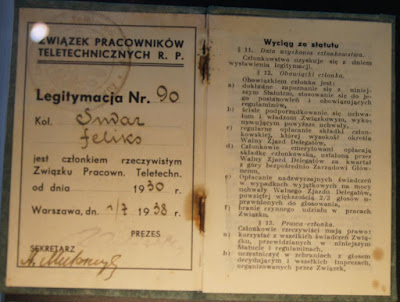 ZWIĄZEK PRACOWNIKÓW
TELETECHNICZNYCH R. P.
Legitymacja Nr. 90
Kol.
Feliks
jest członkiem rzeczywistym
Związku Pracown. Teletechn.
od dnia 1930 r.
Warszawa, dn. 1/7 1938 r.
PREZES
SEKRETARZ
Wyciąg ze statutu
§ 11. Data uzyskania członkowstwa.
Członkowstwo uzyskuje się z dniem
wystawienia legitymacji.
§ 12. Obowiązki członka.
Obowiązkiem członka jest:
a) dokładne zapoznanie się z niniej-
szym Statutem, stosowanie się do je-
go postanowień i obowiązujących
regulaminów,
b) ścisłe podporządkowanie się uchwa-
łom i władzom Związkowym, wyko-
nywującym powyższe uchwały.
c) regularne opłacanie składki człon-
kowskiej, której wysokość określa
Walny Zjazd Delegatów,
d) Członkowie emerytowani opłacają
składkę członkowską, ustaloną przez
Walny Zjazd Delegatów, za kwartał
z góry bezpośrednio Zarządowi Głów-
nemu,
e) Opłacanie nadzwyczajnych świadczeń
w wypadkach wyjątkowych na mocy
uchwały Walnego Zjazdu Delegatów,
powziętej większością 2/3 głosów u-
prawnionych do głosowania,
f) branie czynnego udziału w pracach
Związku.
§ 13. Prawa członka.
Członkowie rzeczywiści mają prawo:
a) korzystać z wszelkich świadczeń Zwią-
zku, przewidzianych w niniejszym
Statucie i regulaminach,
b) uczestniczyć w zebraniach z głosem
decydującym i wszelkich imprezach,
organizowanych przez Związek,